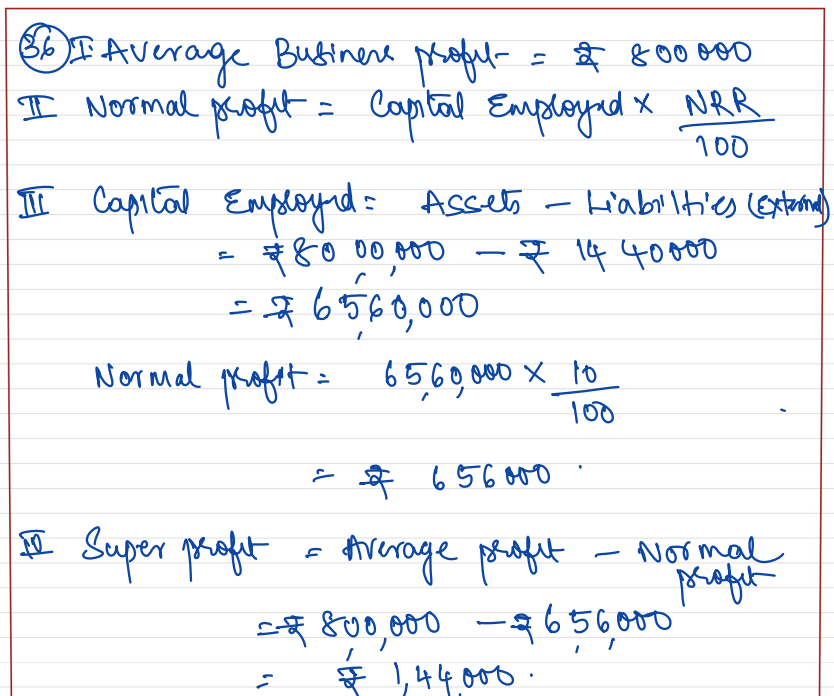 36 I. Average Business profit = ₹ 800000
II Normal profit = Capital Employed × NRR/100
III Capital Employed = Assets - Liabilities (External)
= ₹80,00,000 - ₹ 1440000
= ₹ 65,60,000
Normal profit = 65,60,000 × 10/100
= ₹ 656000
IV Super profit = Average profit - Normal profit
= ₹ 8,00,000 - ₹ 6,56,000
= ₹ 1,44,000.